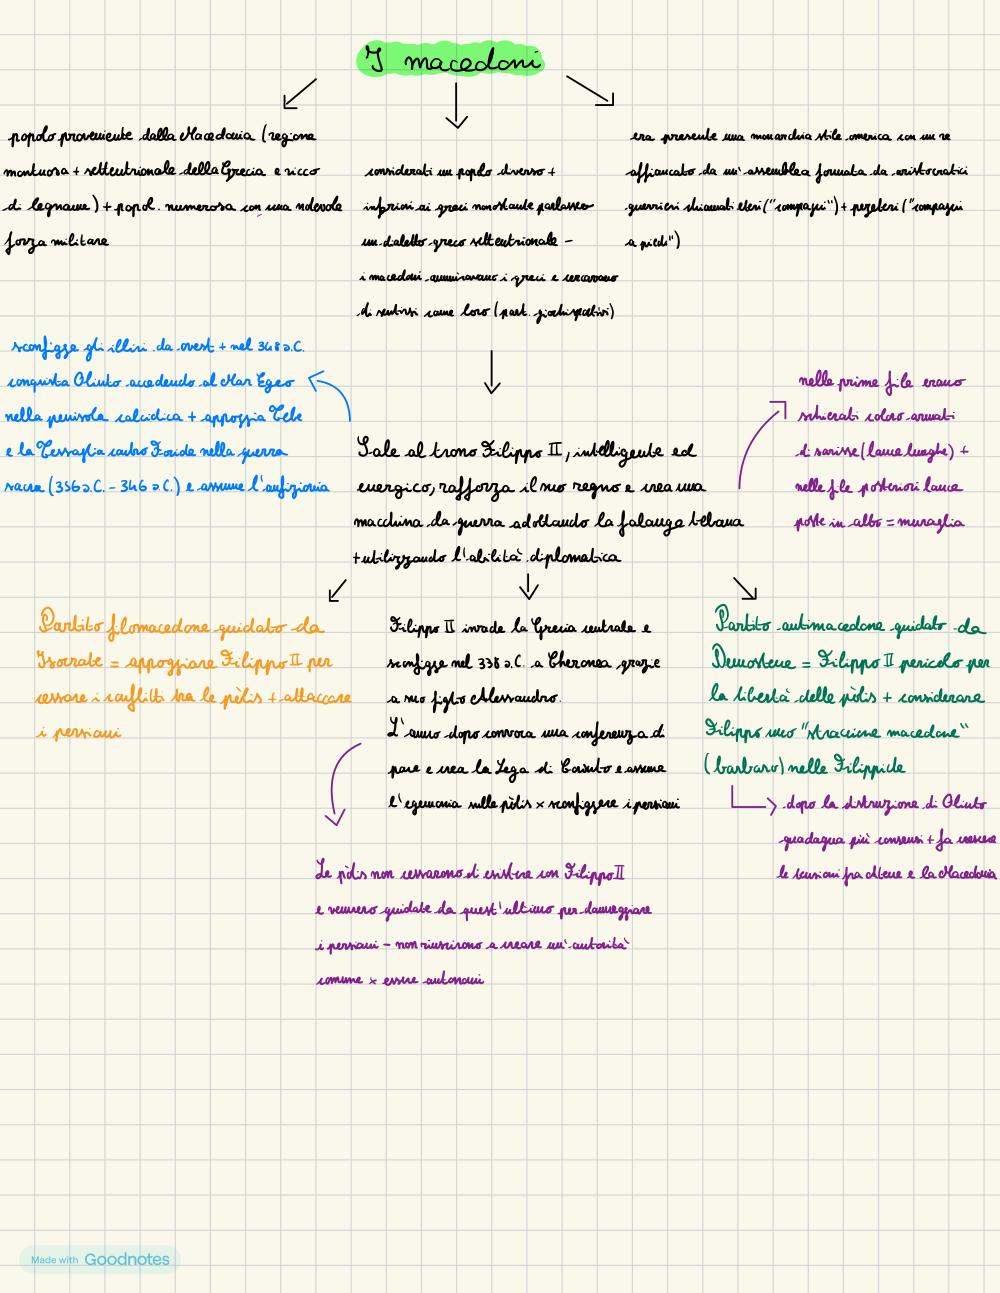 I macedoni
popolo proveniente dalla Macedonia (regione
montuosa + settentrionale della Grecia e ricco
di legname) + popol. numerosa con una notevole
forza militare
considerati un popolo diverso +
inferiori ai greci nonostante parlassero
un dialetto greco settentrionale -
i macedoni ammiravano i greci e cercavano
di sentirsi come loro (part. giochi sportivi)
era presente una monarchia stile omerica con un re
affiancato da un'assemblea formata da aristocratici
guerrieri chiamati eteri ("compagni") + pezeteri ("compagni
a piedi")
sconfigge gli illiri da ovest + nel 348 a.C.
conquista Olinto accedendo al Mar Egeo
nella penisola calcidica + appoggia Tebe
e la Tessaglia contro Focide nella guerra
sacra (356 a.C. - 346 a.C.) e assume l'anfizionia
Sale al trono Filippo II, intelligente ed
energico, rafforza il suo regno e crea una
macchina da guerra adottando la falange tebana
+ utilizzando l'abilità diplomatica
nelle prime file erano
schierati coloro armati
di sarisse (lance lunghe) +
nelle file posteriori lance
poste in alto = muraglia
Partito filomacedone guidato da
Isocrate = appoggiare Filippo II per
cessare i conflitti tra le pòlis + attaccare
i persiani
Filippo II invade la Grecia centrale e
sconfigge nel 338 a.C. a Cheronea grazie
a suo figlio Alessandro.
L'anno dopo convoca una conferenza di
pace e crea la Lega di Corinto e assume
l'egemonia sulle pòlis x sconfiggere i persiani
Partito antimacedone guidato da
Demostene = Filippo II pericolo per
la libertà delle pòlis + considerare
Filippo uno "straccione macedone"
(barbaro) nelle Filippiche
dopo la distruzione di Olinto
guadagna più consensi + fa crescere
le tensioni fra Atene e la Macedonia
Le pòlis non cessarono di esistere con Filippo II
e vennero guidate da quest'ultimo per danneggiare
i persiani - non riuscirono a creare un'autorità
comune x essere autonomi
Made with Goodnotes